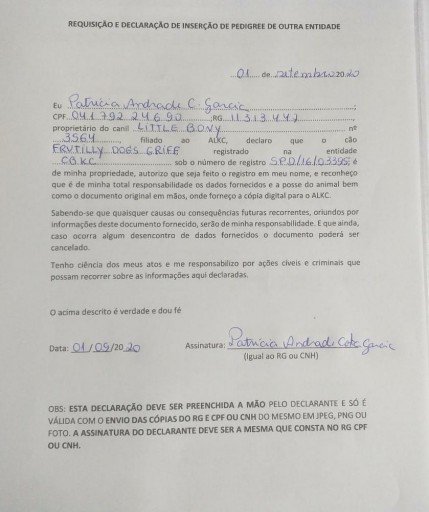 REQUISIÇÃO E DECLARAÇÃO DE INSERÇÃO DE PEDIGREE DE OUTRA ENTIDADE
01 de setembro 2020
Eu Patricia Andrade C. Garcia;
CPF 041 792 246 90; RG 11 313 442
proprietário do canil LITTLE BONY nº
3564, filiado ao ALKC, declaro que o cão
FRUTILLY DOGS GRIFE registrado na entidade
CBKC sob o número de registro SPD/16/03395 é
de minha propriedade, autorizo que seja feito o registro em meu nome, e reconheço
que é de minha total responsabilidade os dados fornecidos e a posse do animal bem
como o documento original em mãos, onde forneço a cópia digital para o ALKC.
Sabendo-se que quaisquer causas ou consequências futuras recorrentes, oriundos por
informações deste documento fornecido, serão de minha responsabilidade. E que ainda,
caso ocorra algum desencontro de dados fornecidos o documento poderá ser
cancelado.
Tenho ciência dos meus atos e me responsabilizo por ações cíveis e criminais que
possam recorrer sobre as informações aqui declaradas.
O acima descrito é verdade e dou fé
Data: 01/09/2020 Assinatura: Patricia Andrade Garcia
(Igual ao RG ou CNH)
OBS: ESTA DECLARAÇÃO DEVE SER PREENCHIDA A MÃO PELO DECLARANTE E SÓ É
VÁLIDA COM O ENVIO DAS CÓPIAS DO RG E CPF OU CNH DO MESMO EM JPEG, PNG OU
FOTO. A ASSINATURA DO DECLARANTE DEVE SER A MESMA QUE CONSTA NO RG CPF
OU CNH.